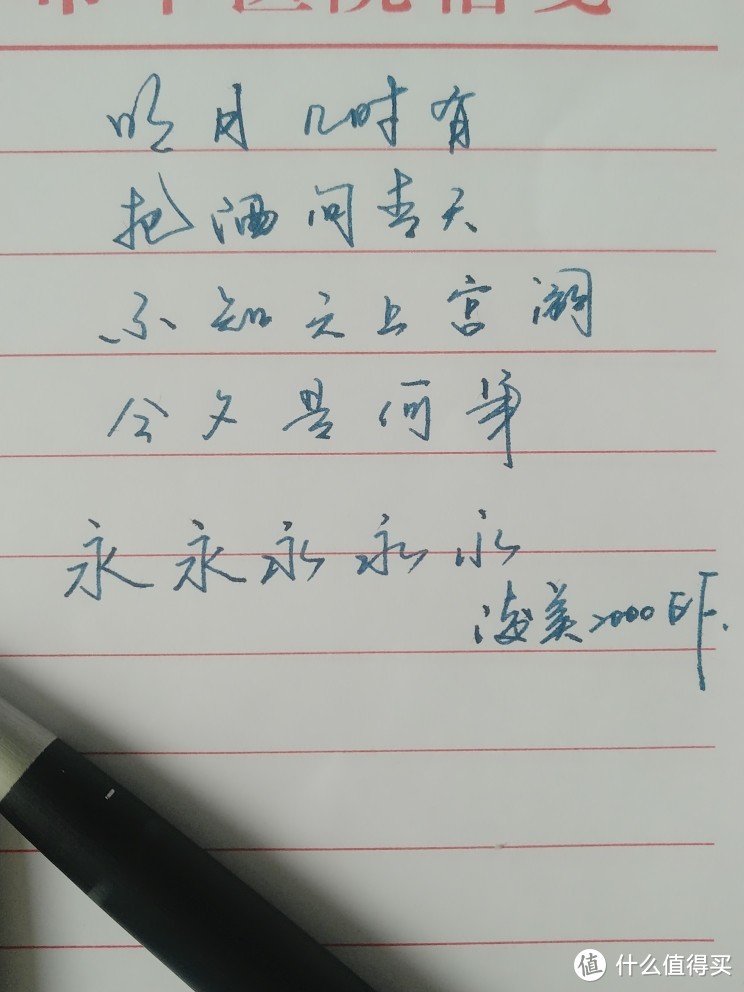 明月几时有
把酒问青天
不知天上宫阙
今夕是何年
永永永永永
凌美2000EF.
值 什么值得买